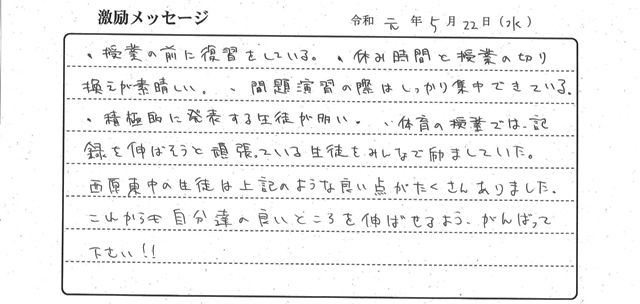 激励メッセージ 令和 元 年 5 月 22 日 (水)
・授業の前に復習をしている。・休み時間と授業の切り
換えが素晴しい。・問題演習の際はしっかり集中できている。
・積極的に発表する生徒が多い。・体育の授業では、記
録を伸ばそうと頑張っている生徒をみんなで励ましていた。
西原東中の生徒は上記のような良い点がたくさんありました。
これからも自分達の良いところを伸ばせるよう、がんばって
下さい!!